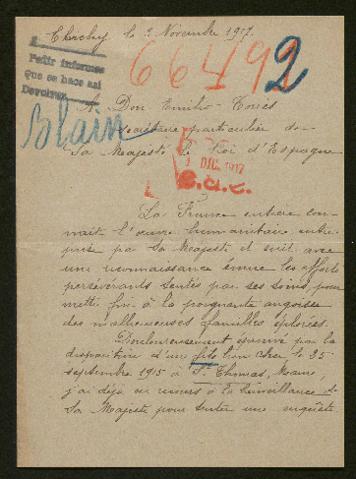 Clichy le 2 Novembre 1917.
Pedir informes
que se hace así
Devolver
664912
A Don Emilio Torrès
Blain
Secrétaire particulier de
Sa Majesté le Roi d'Espagne
DIC. 1917
La France entière con-
naît l'œuvre humanitaire entre-
prise par Sa Majesté et suit avec
une reconnaissance émue les efforts
persévérants tentés par ses soins pour
mettre fin à la poignante angoisse
des malheureuses familles éplorées.
Douloureusement éprouvé par la
disparition d'un fils bien cher le 25
septembre 1915 à St Thomas, Marne,
j'ai déjà eu recours à la bienveillance de
Sa Majesté pour tenter une enquête